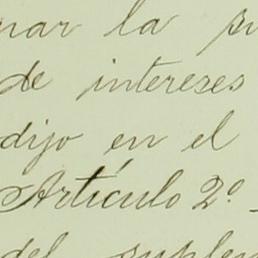 nar la su
de intereses
dijo en el
Artículo 2º
del suplen